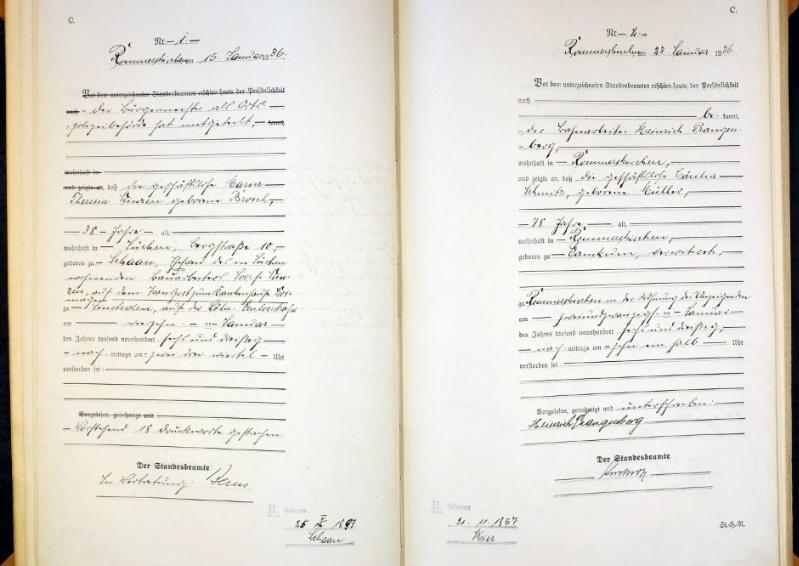 C.
Nr. 1.
Rommerskirchen 15. Januar 1936.
Vor dem unterzeichneten Standesbeamten erschien heute, der Persönlichkeit
nach - der Bürgermeister als Orts-
polizeibehörde hat mitgeteilt, - kannt,
wohnhaft in
und zeigte an, daß die geschäftslose Maria
Theresia geborene
38 - Jahre - alt,
wohnhaft in - Jüchen, Bergstraße 10, -
geboren zu - Schaan, Ehefrau des in Jüchen
wohnenden Bauarbeiters Josef
auf dem Transport zum Krankenhause
zu - auf der Köln-
am - vierzehn - ten Januar
des Jahres tausend neunhundert sechs und dreißig -
- nach - mittags um - zwei drei viertel - Uhr
verstorben sei
Vorgelesen, genehmigt und
- Vorstehend 18 Druckworte gestrichen.
Der Standesbeamte
In Vertretung:
25 X 1897
Schaan
C.
Nr. 2.
Rommerskirchen 23. Januar 1936.
Vor dem unterzeichneten Standesbeamten erschien heute, der Persönlichkeit
nach
be- kannt,
- der Bahnarbeiter Heinrich Prangen-
berg, -
wohnhaft in - Rommerskirchen, -
und zeigte an, daß die geschäftslose
Schmitz, geborene Müller, -
- 78 Jahre, - alt,
wohnhaft in - Rommerskirchen, -
geboren zu - verwitwet, -
zu Rommerskirchen in der Wohnung des Anzeigenden
am - zweiundzwanzigs - ten Januar
des Jahres tausend neunhundert sechs und dreißig, -
- nach - mittags um - zehn ein halb - Uhr
verstorben sei
Vorgelesen, genehmigt und unterschrieben.
Heinrich Prangenberg
Der Standesbeamte
21. 11. 1857
Hier
St.-H.-N.